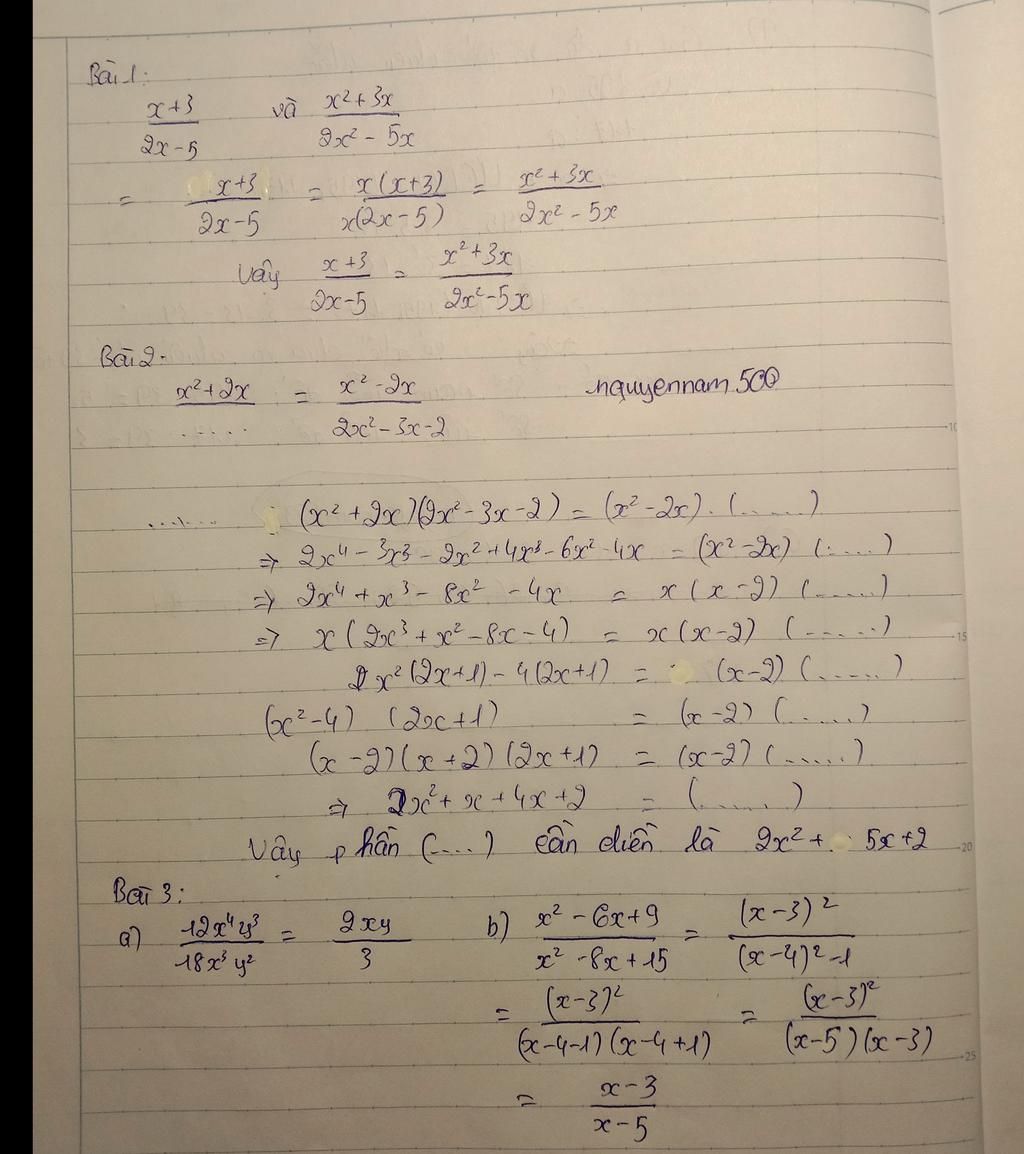 Bài 1:
x+3/2x-5 và x²+3x/2x²-5x
= x+3/2x-5 = x(x+3)/x(2x-5) = x²+3x/2x²-5x
Vậy x+3/2x-5 = x²+3x/2x²-5x
Bài 2:
x²+2x/..... = x²-2x/2x²-3x-2
nguyennam500
....... (x²+2x)(2x²-3x-2) = (x²-2x).(......)
⇒ 2x⁴-3x³-2x²+4x³-6x²-4x = (x²-2x) (.....)
⇒ 2x⁴+x³-8x²-4x = x(x-2) (......)
⇒ x(2x³+x²-8x-4) = x(x-2) (......)
x²(2x+1)-4(2x+1) = (x-2) (......)
(x²-4) (2x+1) = (x-2) (......)
(x-2)(x+2)(2x+1) = (x-2) (......)
⇒ 2x²+x+4x+2 = (......)
Vậy phần (....) cần điền là 2x²+ 5x+2
Bài 3:
a) 12x⁴y³/18x³y² = 2xy/3
b) x²-6x+9/x²-8x+15 = (x-3)²/(x-4)²-1
= (x-3)²/(x-4-1)(x-4+1) = (x-3)²/(x-5)(x-3)
= x-3/x-5